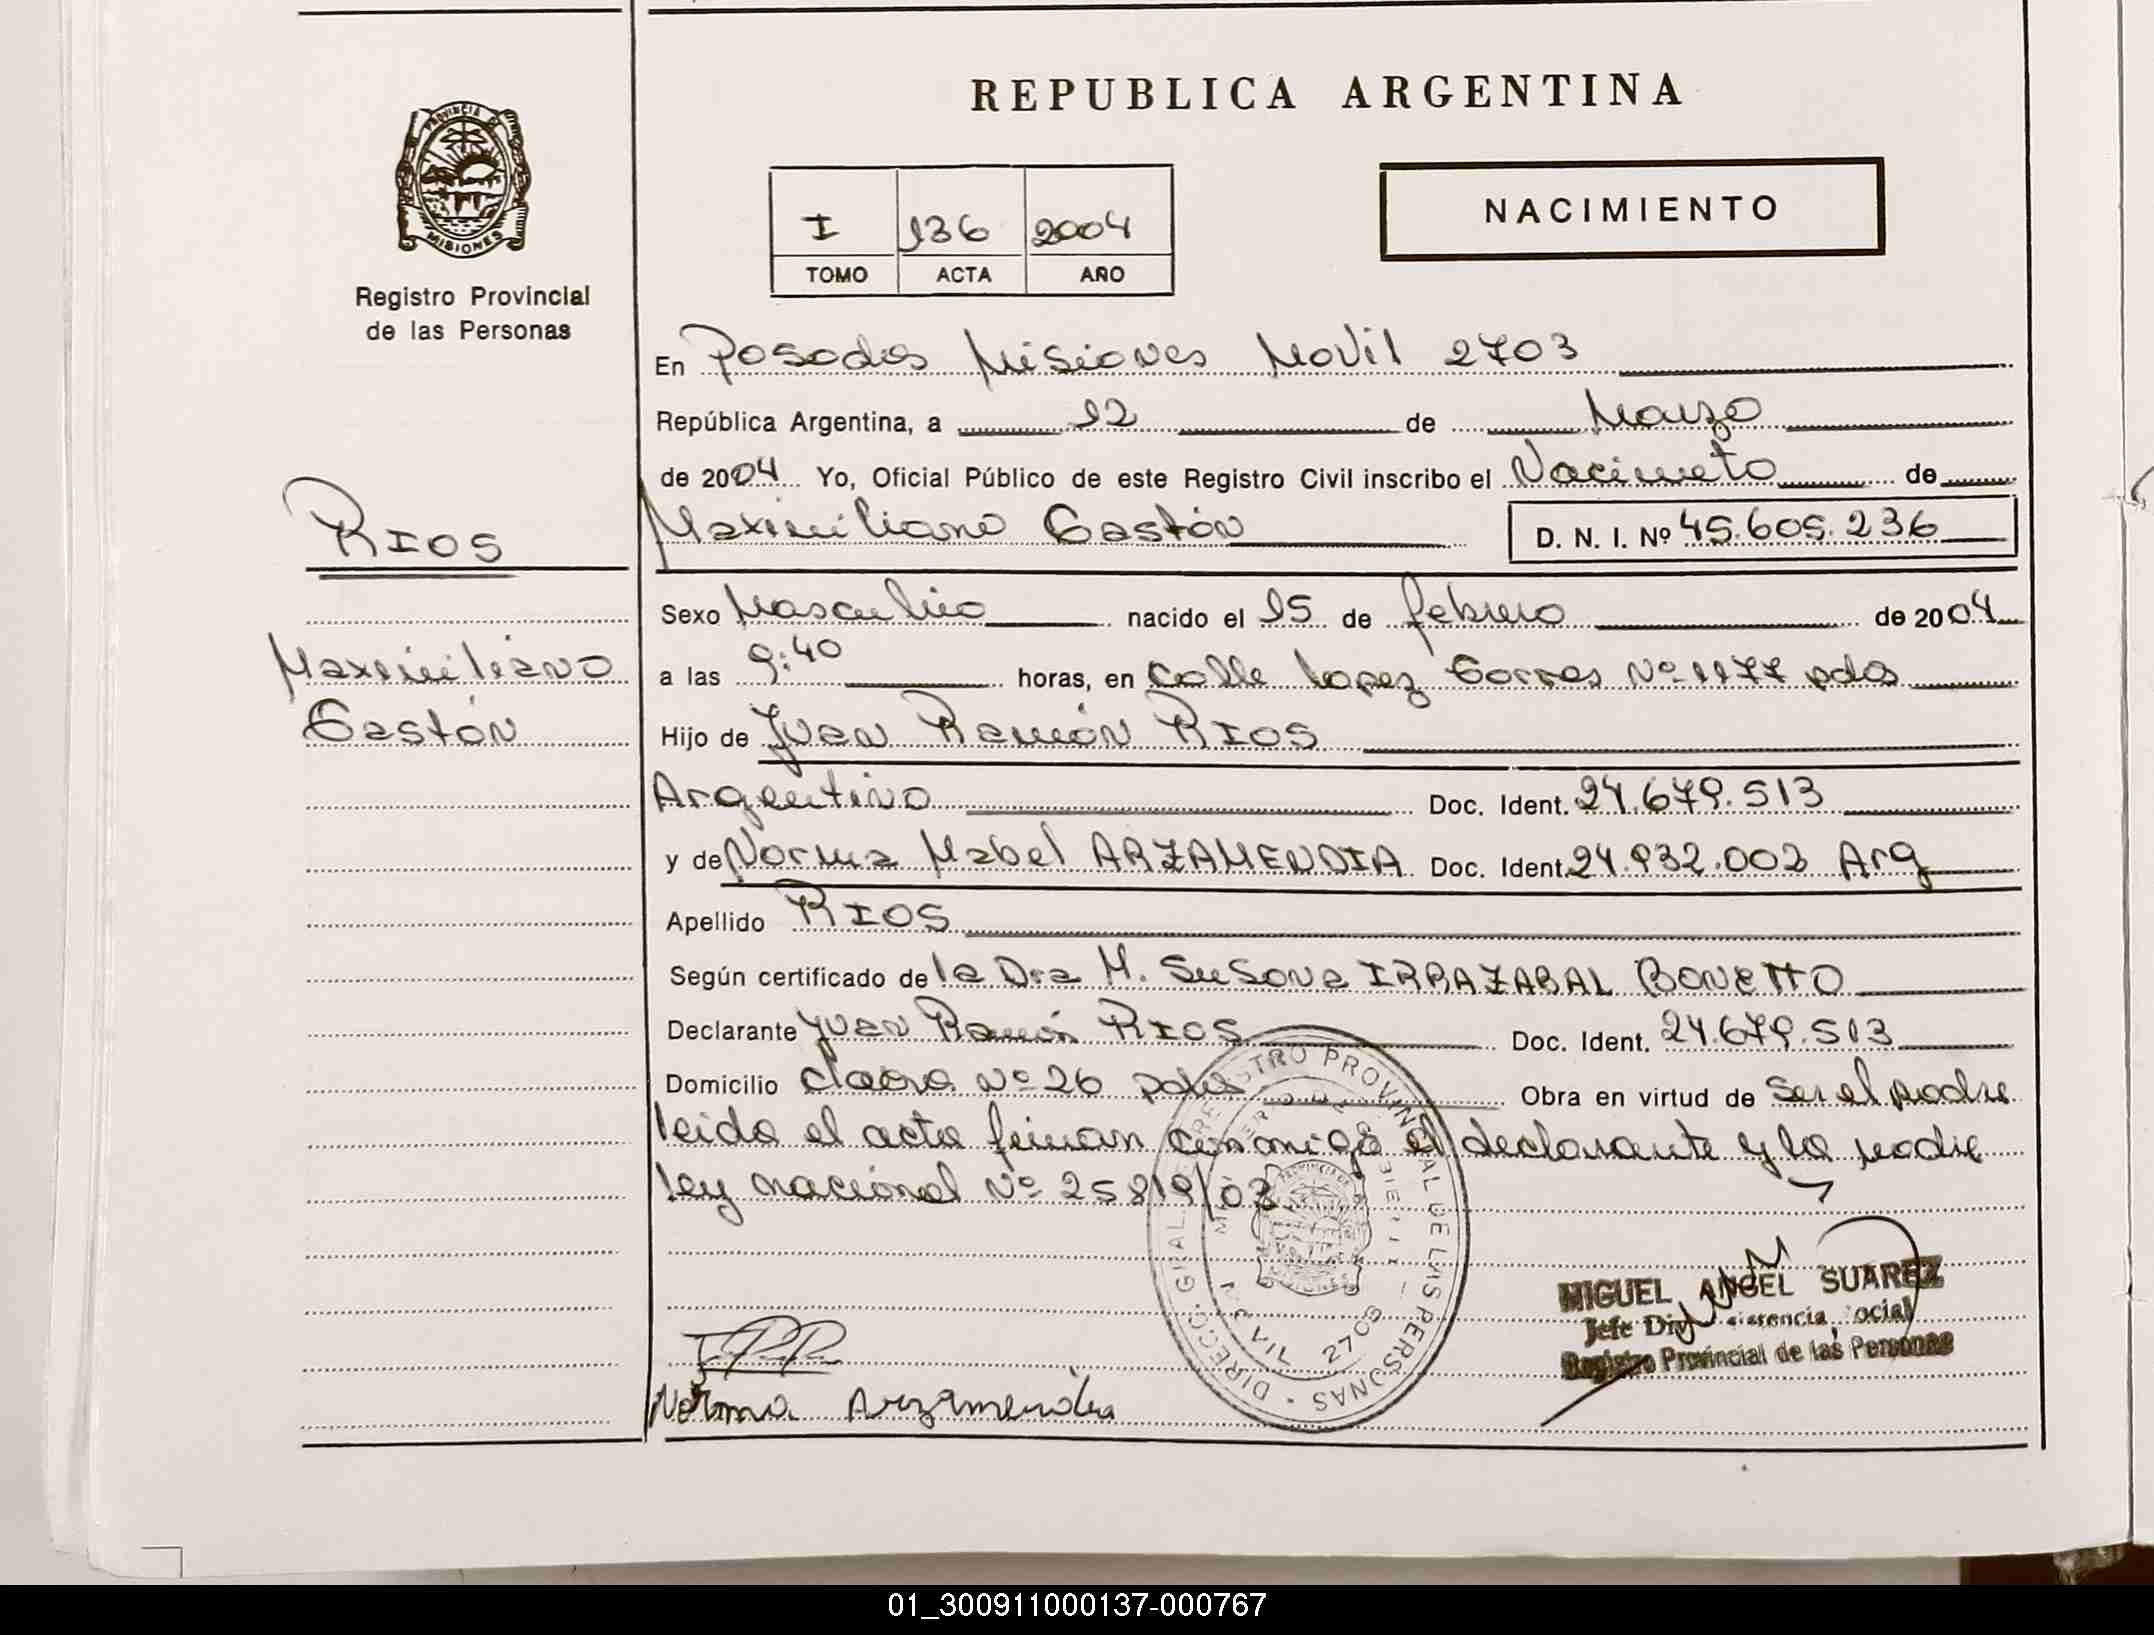 REPUBLICA ARGENTINA
PROVINCIA DE
MISIONES
Registro Provincial
de las Personas
I 136 2004
TOMO ACTA AÑO
NACIMIENTO
En Posadas Misiones Movil 2703
República Argentina, a 12 de Marzo
de 2004 Yo, Oficial Público de este Registro Civil inscribo el Nacimieto de
Maximiliano Gastón D. N. I. Nº 45.605.236
RIOS
Maximiliano
Gastón
Sexo Masculino nacido el 15 de febrero de 2004
a las 9:40 horas, en Calle Lopez Torres Nº 1177 pdas
Hijo de Juan Ramón RIOS
Argentino Doc. Ident. 24.679.513
y de Norma Mabel ARZAMENDIA Doc. Ident. 24.932.002 Arg
Apellido RIOS
Según certificado de la Dra M. Susana IRRAZABAL BONETTO
Declarante Juan Ramón RIOS Doc. Ident. 24.679.513
Domicilio Nº 26 pdas Obra en virtud de Ser el padre
leida el acta firman conmigo el declarante y la madre
ley nacional Nº 25819/03
DIRECC. GRAL. REGISTRO PROVINCIAL DE LAS PERSONAS
MOVIL 2703
MIGUEL ANGEL SUAREZ
Jefe Div Asistencia Social
Registro Provincial de las Personas
Norma Arzamendia
01_300911000137-000767